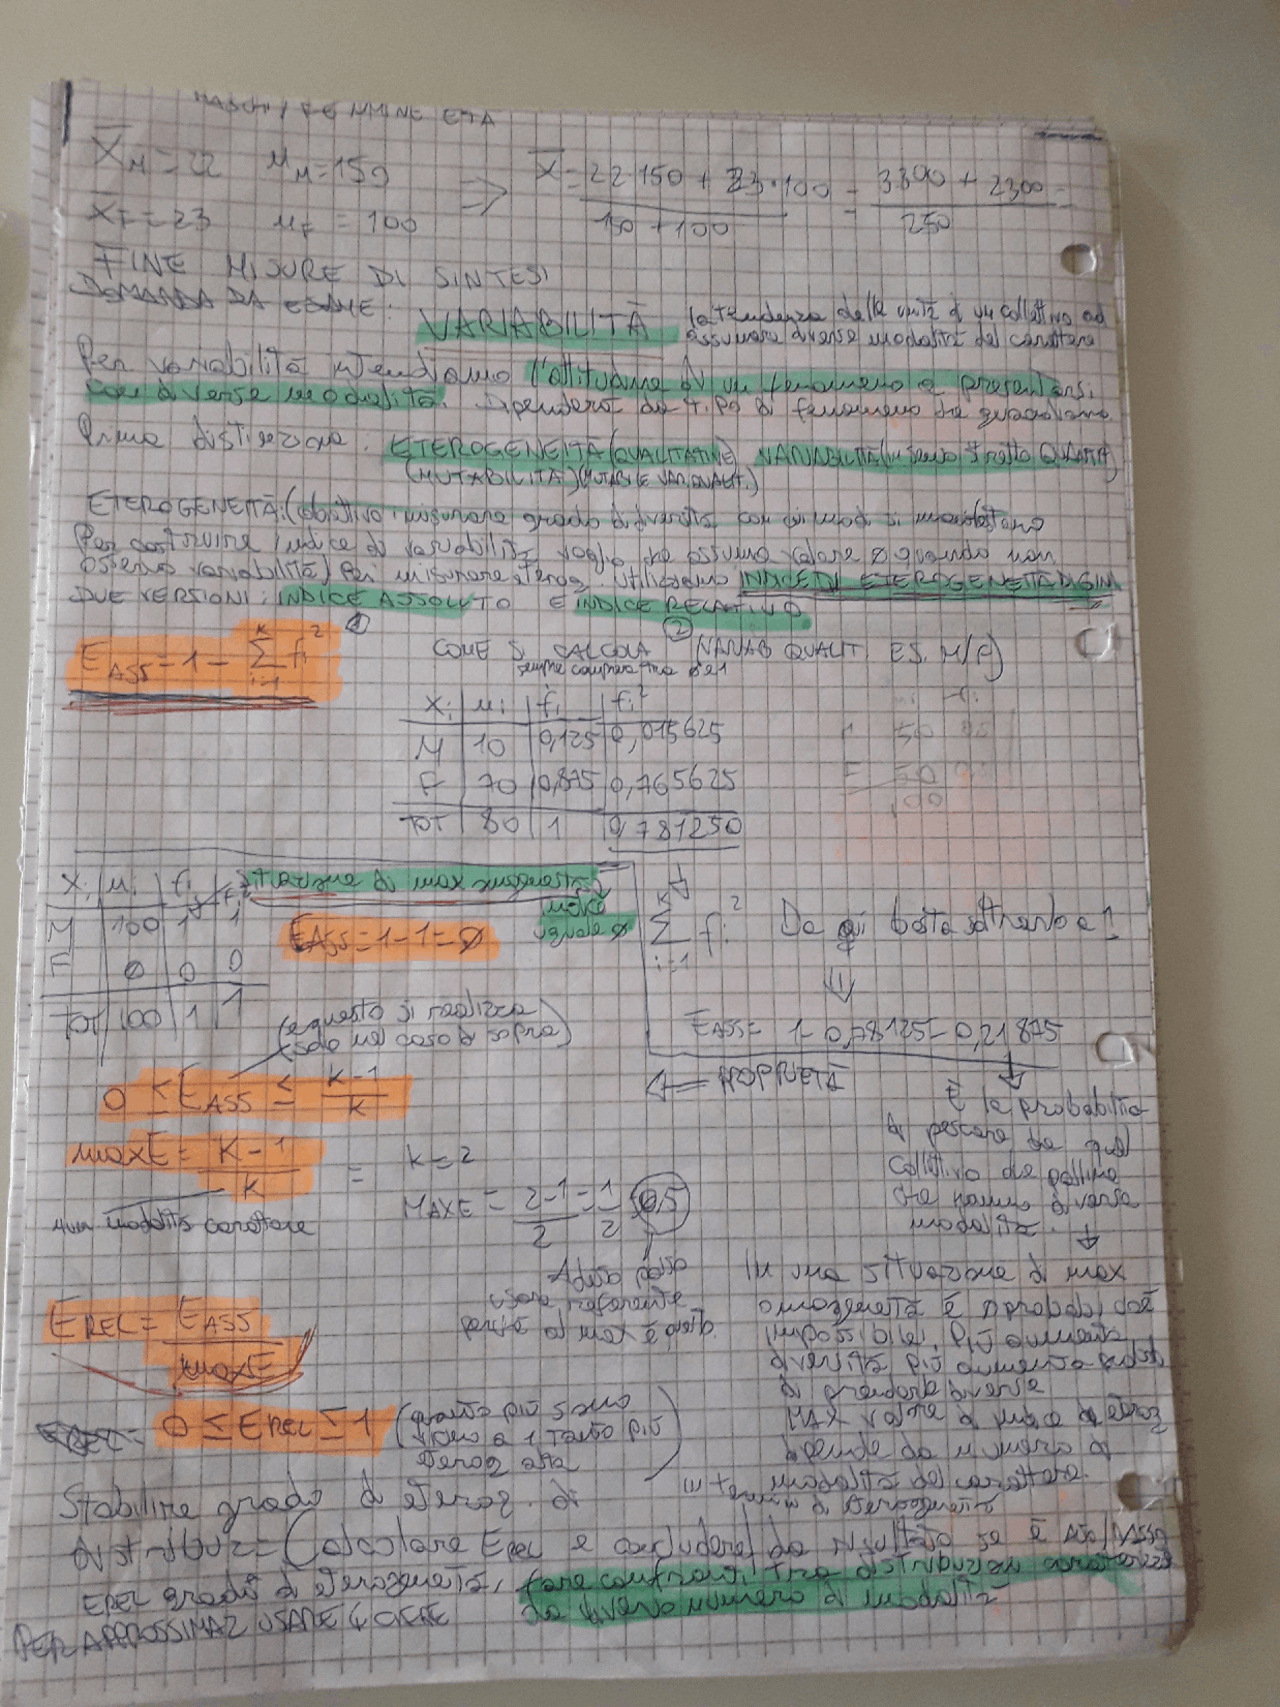 MASCHI / FEMMINE ETÀ
X̄M = 22   nM = 150   ⇒   X̄ = (22·150 + 23·100) / (150 + 100) = (3300 + 2300) / 250 =
X̄F = 23   nF = 100
FINE MISURE DI SINTESI
DOMANDA DA ESAME: VARIABILITÀ la tendenza delle unità di un collettivo ad
assumere diverse modalità del carattere
Per variabilità intendiamo l'attitudine di un fenomeno a presentarsi
con diverse modalità. Dipenderà da tipo di fenomeno che guardiamo
Prima distinzione: ETEROGENEITÀ (QUALITATIVE) VARIABILITÀ (in senso stretto QUANTIT)
(MUTABILITÀ)
ETEROGENEITÀ: (obiettivo: misurare grado diversità con cui mod si manifestano
Per costruire indice di variabilità voglio che assuma valore 0 quando non
osservo variabilità) Per misurare eterog. utilizziamo INDICE DI ETEROGENEITÀ DI GINI
DUE VERSIONI: INDICE ASSOLUTO E INDICE RELATIVO
1   2
E ASS = 1 - Σ fi² (i=1, K)
COME SI CALCOLA (VARIAB QUALIT ES. M/F)
sempre compreso tra 0 e 1
Xi | ni | fi | fi²
M | 10 | 0,125 | 0,015625
F | 70 | 0,875 | 0,765625
TOT | 80 | 1 | 0,781250
50
F 50
100
Xi | ni | fi | fi²   Situazione di max omogeneità
M | 100 | 1 | 1
F | 0 | 0 | 0
TOT | 100 | 1 | 1
indice
uguale 0
EASS = 1-1 = 0
K Σ fi² i=1   Da qui basta sottrarlo a 1
EASS = 1 - 0,78125 = 0,21875
(e questo si realizza
solo nel caso di sopra)
0 ≤ EASS ≤ (K-1)/K
⇐ PROPRIETÀ
maxE = (K-1)/K = K = 2
MAXE = (2-1)/2 = 1/2 = 0,5
num modalità carattere
È la probabilità
di pescare da quel
collettivo due palline
che hanno diversa
modalità.
Adesso posso
usare referente
perché il max è
In una situazione di max
omogeneità è 0 probab, cioè
impossibile, più aumenta
diversità più aumenta
di prenderle diverse
MAX valore di indice di eterog
dipende da numero di
modalità del carattere.
in termini di eterogeneità
EREL = EASS / maxE
0 ≤ EREL ≤ 1 (quanto più sono
vicino a 1 tanto più
eterog alta
Stabilire grado di eterog. di
distribuz = Calcolare Erel e concludere da risultato se è ALTO/BASSO
EREL grado di eterogeneità, fare confronti tra distribuzioni caratterizz
da diverso numero di modalità
PER APPROSSIMAZ USARE 4 CIFRE